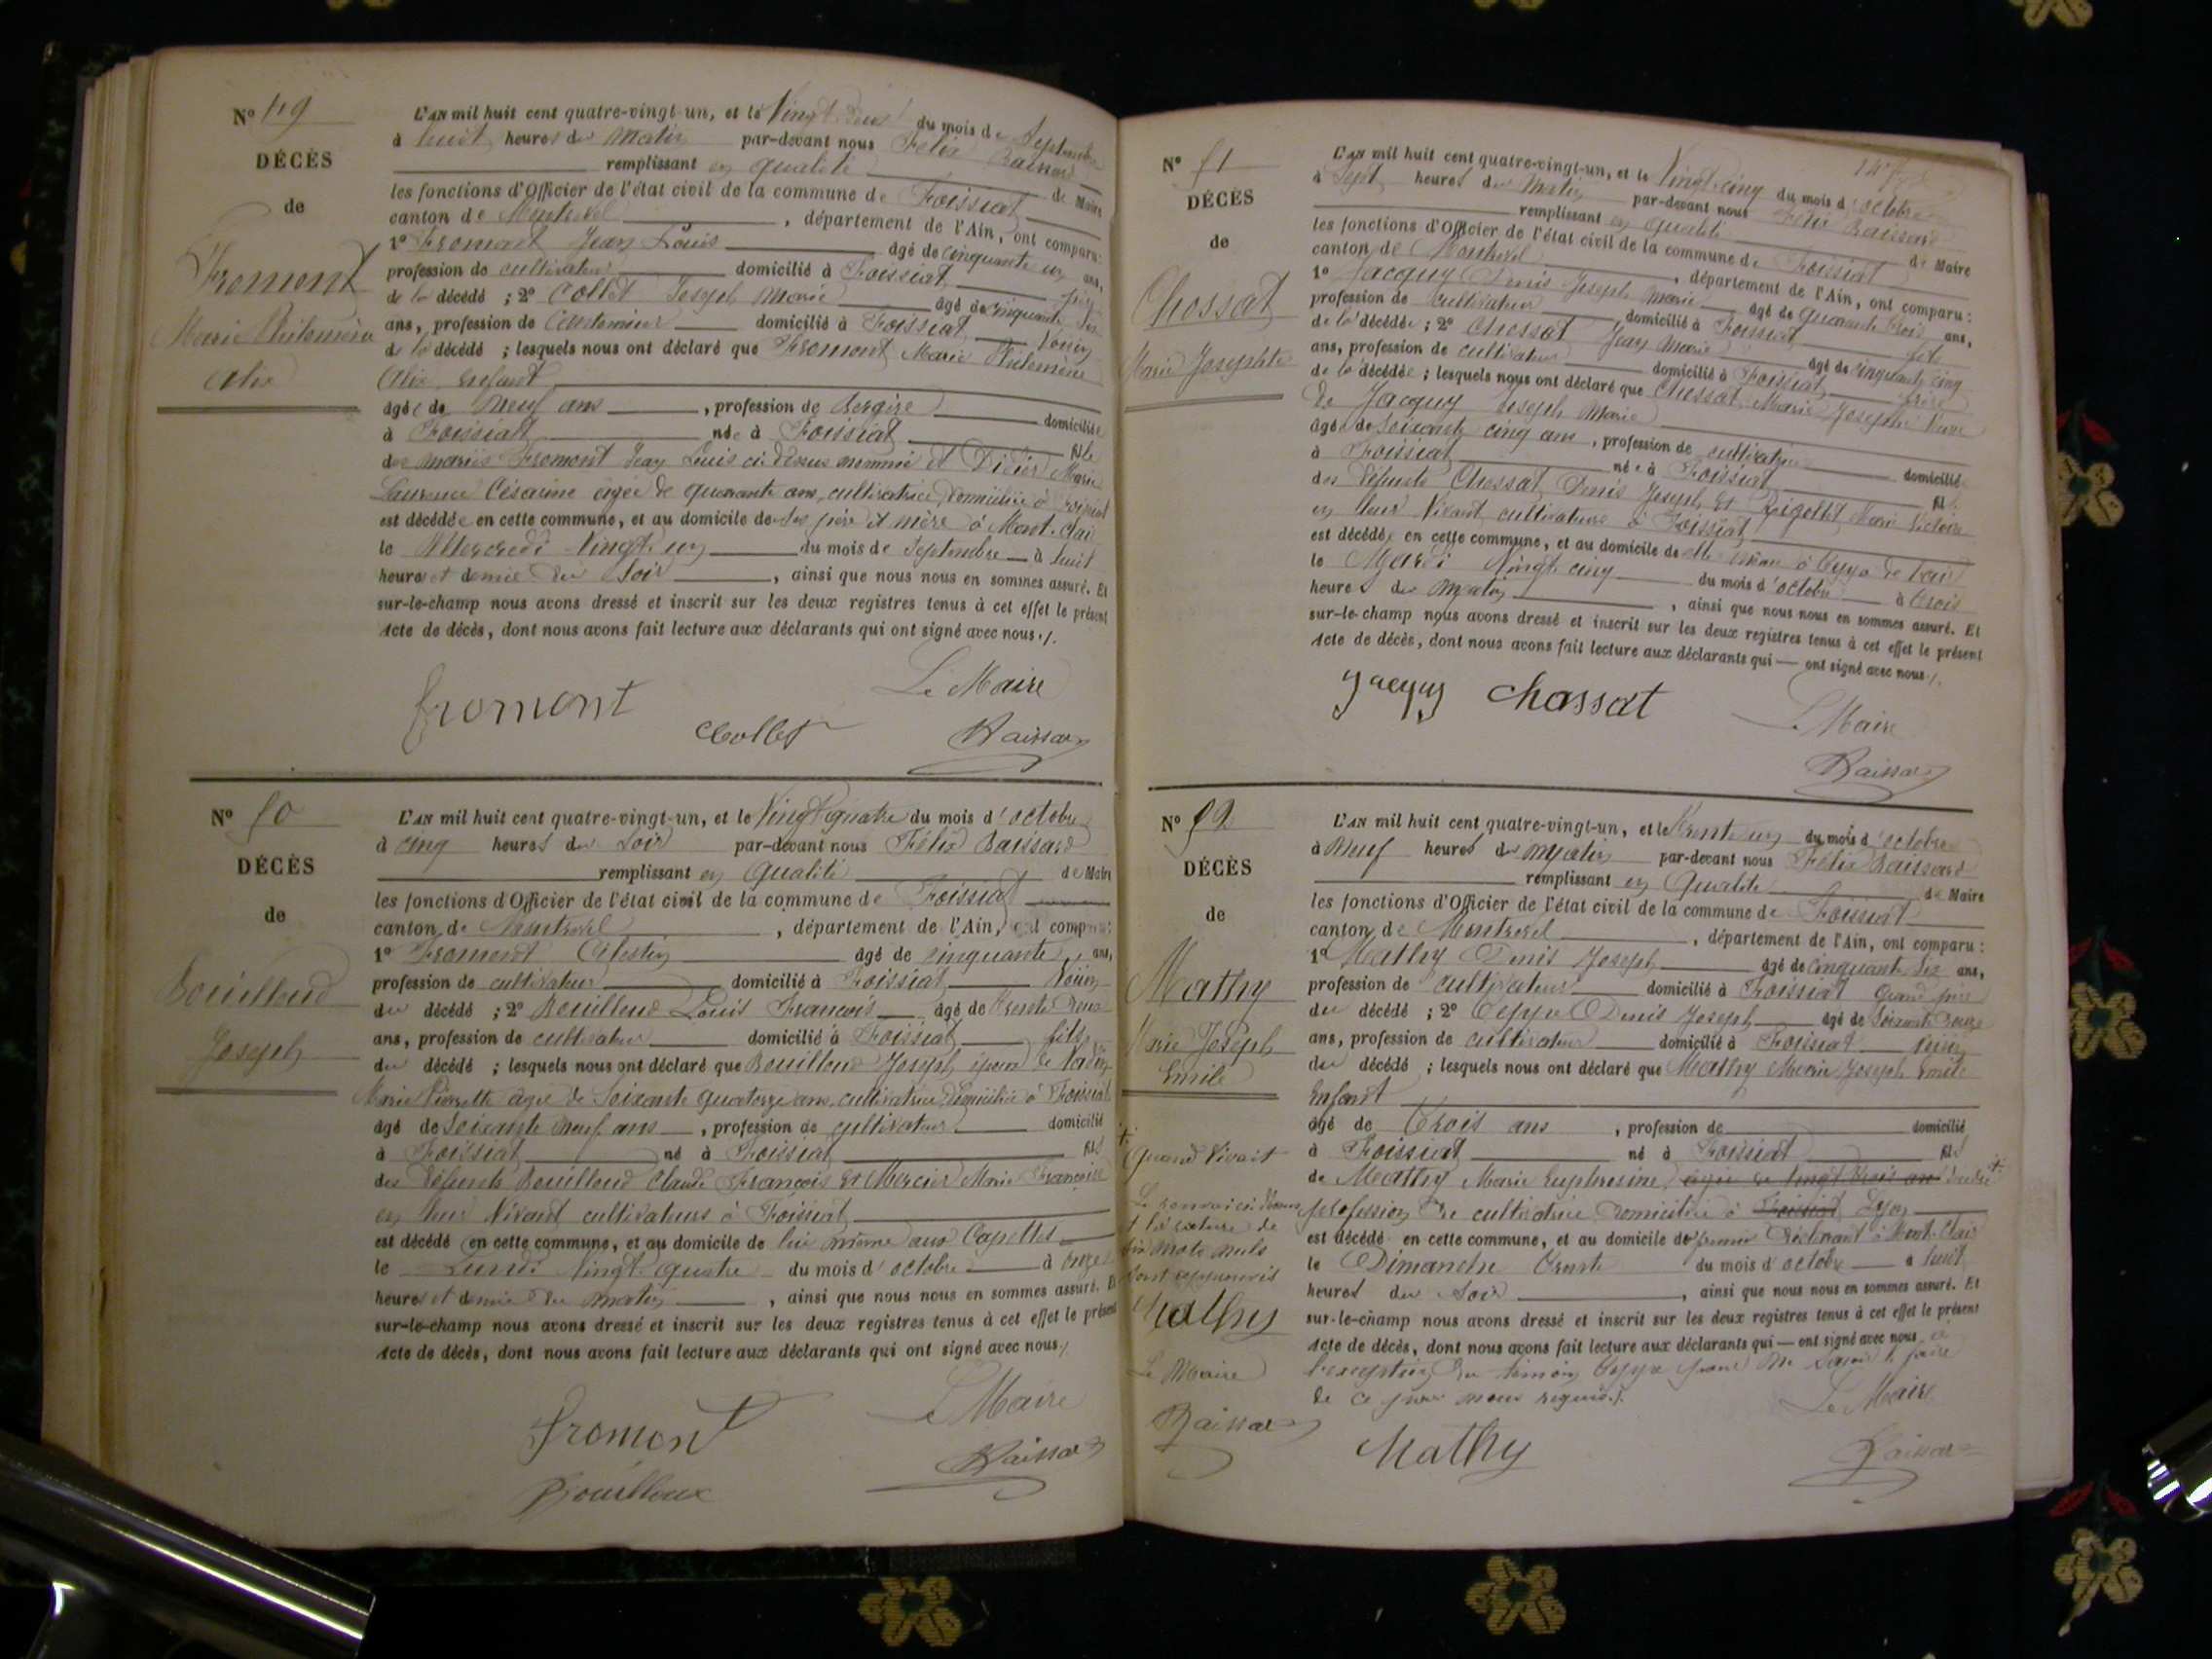 N° 49
DÉCÈS
de
Froment
Marie Philomène
Alix
L'AN mil huit cent quatre-vingt-un, et le Vingt deux du mois de Septembre
à huit heures du matin par-devant nous Félix Baissard
remplissant en qualité de Maire
les fonctions d'Officier de l'état civil de la commune de Foissiat
canton de Montrevel, département de l'Ain, ont comparu:
1° Froment Jean Louis âgé de cinquante un ans,
profession de cultivateur domicilié à Foissiat père
de la décédé ; 2° Collet Joseph Marie âgé de cinquante
ans, profession de domicilié à Foissiat, voisin
de la décédé ; lesquels nous ont déclaré que Froment Marie Philomène
Alix enfant
âgée de Neuf ans, profession de Bergère domiciliée
à Foissiat née à Foissiat fille
des mariés Froment Jean Louis ci-dessus nommé et Didier Marie
Laurence Césarine âgée de quarante ans, cultivatrice, domiciliée à Foissiat
est décédée en cette commune, et au domicile de ses père et mère à Mont-clair
le Mercredi Vingt un du mois de Septembre à huit
heures et demie du Soir, ainsi que nous nous en sommes assuré. Et
sur-le-champ nous avons dressé et inscrit sur les deux registres tenus à cet effet le présent
Acte de décès, dont nous avons fait lecture aux déclarants qui ont signé avec nous ./.
froment
Collet
Le Maire
Baissard
N° 50
DÉCÈS
de
Bouilloud
Joseph
L'AN mil huit cent quatre-vingt-un, et le Vingt quatre du mois d'octobre
à cinq heures du Soir par-devant nous Félix Baissard
remplissant en qualité de Maire
les fonctions d'Officier de l'état civil de la commune de Foissiat
canton de Montrevel, département de l'Ain, ont comparu:
1° Froment Célestin âgé de cinquante ans,
profession de cultivateur domicilié à Foissiat Voisin
du décédé ; 2° Bouilloud Louis François âgé de trente deux
ans, profession de cultivateur domicilié à Foissiat fils
du décédé ; lesquels nous ont déclaré que Bouilloud Joseph époux de
Marie Pierrette âgée de Soixante quatorze ans, cultivatrice, domiciliée à Foissiat
âgé de Soixante neuf ans, profession de cultivateur domicilié
à Foissiat né à Foissiat fils
des défunts Bouilloud Claude François et Mercier Marie Françoise
en leur Vivant cultivateurs à Foissiat
est décédé en cette commune, et au domicile de lui même aux Capettes
le Lundi Vingt-quatre du mois d'octobre à onze
heures et demie du matin, ainsi que nous nous en sommes assuré. Et
sur-le-champ nous avons dressé et inscrit sur les deux registres tenus à cet effet le présent
Acte de décès, dont nous avons fait lecture aux déclarants qui ont signé avec nous ./.
Froment
Bouilloux
Le Maire
Baissard
N° 51
DÉCÈS
de
Chossat
Marie Josephte
L'AN mil huit cent quatre-vingt-un, et le Vingt cinq du mois d'octobre
à Sept heures du Matin par-devant nous Félix Baissard
remplissant en qualité de Maire
les fonctions d'Officier de l'état civil de la commune de Foissiat
canton de Montrevel, département de l'Ain, ont comparu :
1° Jacquy Denis Joseph Marie âgé de quarante trois ans,
profession de cultivateur domicilié à Foissiat fils
de la décédée ; 2° Chossat Jean Marie âgé de cinquante cinq
ans, profession de cultivateur domicilié à Foissiat frère
de la décédée ; lesquels nous ont déclaré que Chossat Marie Josephte Veuve
de Jacquy Joseph Marie
âgée de soixante cinq ans, profession de cultivatrice domiciliée
à Foissiat née à Foissiat fille
des Défunts Chossat Denis Joseph et Marie Victoire
en leur Vivant cultivateurs à Foissiat
est décédée en cette commune, et au domicile de elle même à
le Mardi Vingt cinq du mois d'octobre à trois
heures du matin, ainsi que nous nous en sommes assuré. Et
sur-le-champ nous avons dressé et inscrit sur les deux registres tenus à cet effet le présent
Acte de décès, dont nous avons fait lecture aux déclarants qui — ont signé avec nous ./.
Jacquy chossat
Le Maire
Baissard
N° 52
DÉCÈS
de
Mathy
Marie Joseph
Emile
L'AN mil huit cent quatre-vingt-un, et le Trente un du mois d'octobre
à Neuf heures du matin par-devant nous Félix Baissard
remplissant en Qualité de Maire
les fonctions d'Officier de l'état civil de la commune de Foissiat
canton de Montrevel, département de l'Ain, ont comparu :
1° Mathy Denis Joseph âgé de cinquante six ans,
profession de cultivateur domicilié à Foissiat Grand père
du décédé ; 2° Denis Joseph âgé de Soixante
ans, profession de cultivateur domicilié à Foissiat voisin
du décédé ; lesquels nous ont déclaré que Mathy Marie Joseph Emile
Enfant
âgé de Trois ans, profession de domicilié
à Foissiat né à Foissiat fils
de Mathy Marie Euphrosine âgée de Vingt trois ans
profession de cultivatrice domiciliée à Foissiat Lyon
est décédé en cette commune, et au domicile du premier Déclarant à Mont-Clair
le Dimanche Trente du mois d'octobre à huit
heures du Soir, ainsi que nous nous en sommes assuré. Et
sur-le-champ nous avons dressé et inscrit sur les deux registres tenus à cet effet le présent
Acte de décès, dont nous avons fait lecture aux déclarants qui — ont signé avec nous à
l'exception du témoin pour ne savoir le faire
de ce par nous requis ./.
Mathy
Le Maire
Baissard
Quand Vivait
Le renvoi ci-dessus
et la rature de
six mots nuls
sont approuvés
Mathy
Le Maire
Baissard